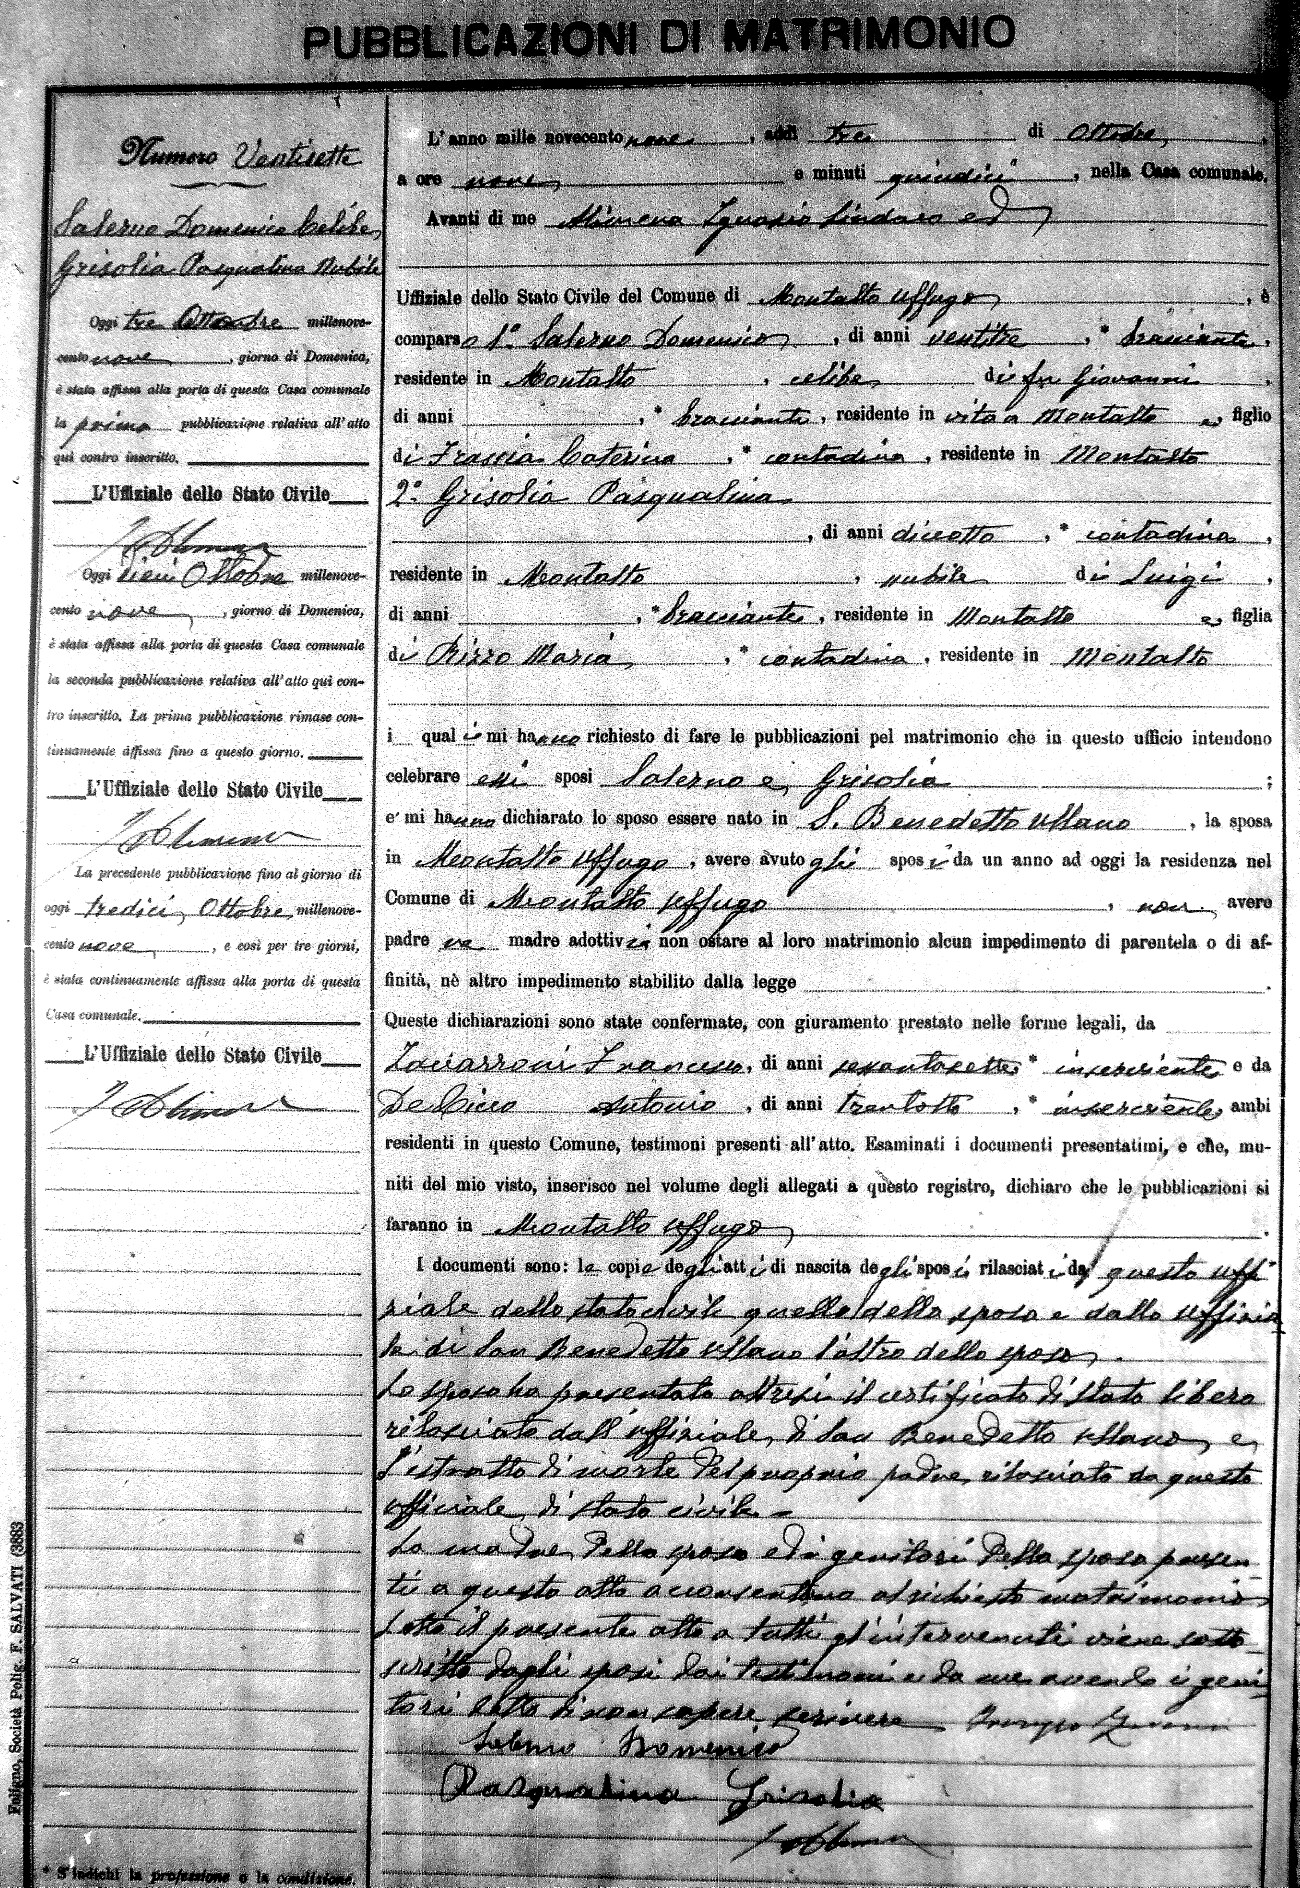 PUBBLICAZIONI DI MATRIMONIO
Numero Ventisette
Salerno Domenico Celibe,
Grisolia Pasqualina Nubile
Oggi tre Ottobre millenove-
cento nove, giorno di Domenica,
è stata affissa alla porta di questa Casa comunale
la prima pubblicazione relativa all'atto
qui contro inscritto.
L'Uffiziale dello Stato Civile
Oggi dieci Ottobre millenove-
cento nove, giorno di Domenica,
è stata affissa alla porta di questa Casa comunale
la seconda pubblicazione relativa all'atto qui con-
tro inscritto. La prima pubblicazione rimase con-
tinuamente affissa fino a questo giorno.
L'Uffiziale dello Stato Civile
La precedente pubblicazione fino al giorno di
oggi tredici Ottobre millenove-
cento nove, e così per tre giorni,
è stata continuamente affissa alla porta di questa
Casa comunale.
L'Uffiziale dello Stato Civile
* S'indichi la professione o la condizione.
Foligno, Società Polig. F. SALVATI (3883
L'anno mille novecento nove, addì tre di Ottobre,
a ore nove e minuti quindici, nella Casa comunale.
Avanti di me Alimena Ignazio Sindaco ed
Uffiziale dello Stato Civile del Comune di Montalto Uffugo, è
comparso 1° Salerno Domenico, di anni ventitre, * bracciante,
residente in Montalto, celibe di fu Giovanni,
di anni , * bracciante, residente in vita a Montalto e, figlio
di Frassia Caterina, * contadina, residente in Montalto
2° Grisolia Pasqualina
, di anni diciotto, * contadina,
residente in Montalto, nubile di Luigi,
di anni , * bracciante, residente in Montalto e, figlia
di Rizzo Maria, * contadina, residente in Montalto
i quali mi hanno richiesto di fare le pubblicazioni pel matrimonio che in questo ufficio intendono
celebrare essi sposi Salerno e Grisolia ;
e mi hanno dichiarato lo sposo essere nato in S. Benedetto Ullano, la sposa
in Montalto Uffugo, avere avuto gli sposi da un anno ad oggi la residenza nel
Comune di Montalto Uffugo, non avere
padre ne madre adottivi non ostare al loro matrimonio alcun impedimento di parentela o di af-
finità, nè altro impedimento stabilito dalla legge .
Queste dichiarazioni sono state confermate, con giuramento prestato nelle forme legali, da
Zavarroni Francesco, di anni sessantasette * inserviente e da
De Cicco Antonio, di anni trentotto, * inserviente, ambi
residenti in questo Comune, testimoni presenti all'atto. Esaminati i documenti presentatimi, e che, mu-
niti del mio visto, inserisco nel volume degli allegati a questo registro, dichiaro che le pubblicazioni si
faranno in Montalto Uffugo.
I documenti sono: le copie degli atti di nascita degli sposi rilasciati da questo uffi
ziale dello stato civile quella della sposa e dallo uffizia
le di San Benedetto Ullano l'altro dello sposo.
Lo sposo ha presentato altresì il certificato di stato libero
rilasciato dall'uffiziale di San Benedetto Ullano e
l'estratto di morte del proprio padre, rilasciato da questo
ufficiale di stato civile =
La madre dello sposo ed i genitori della sposa presen
ti a questo atto acconsentono al richiesto matrimonio
Letto il presente atto a tutti gl'intervenuti viene sotto
scritto dagli sposi dai testimoni e da me avendo i geni-
tori detto di non sapere scrivere
Salerno Domenico
Pasqualina Grisolia